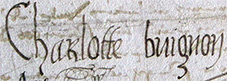 Charlotte buignon